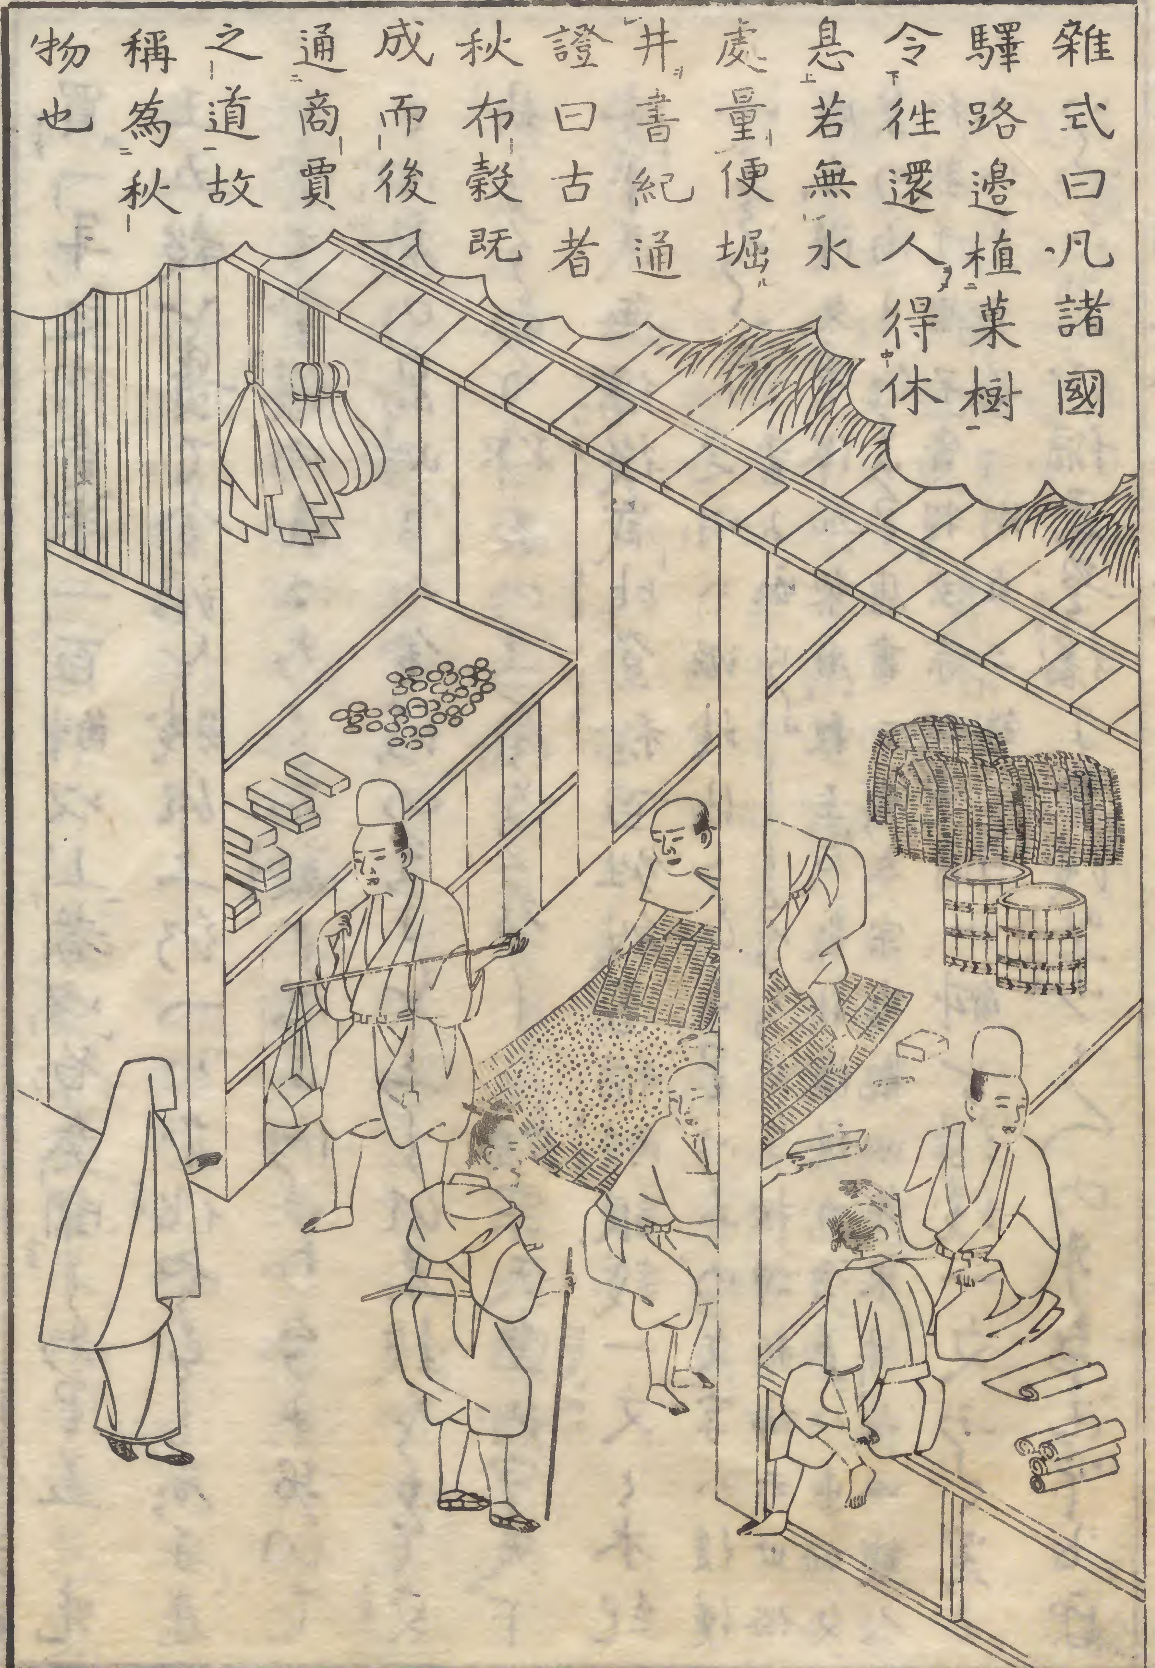 雜式曰凡諸國
驛路邉植菓樹
令徃還人得休
息若無水
處量便堀
井書紀通
證曰古者
秋布穀既
成而後
通商賈
之道故
稱為秋
物也